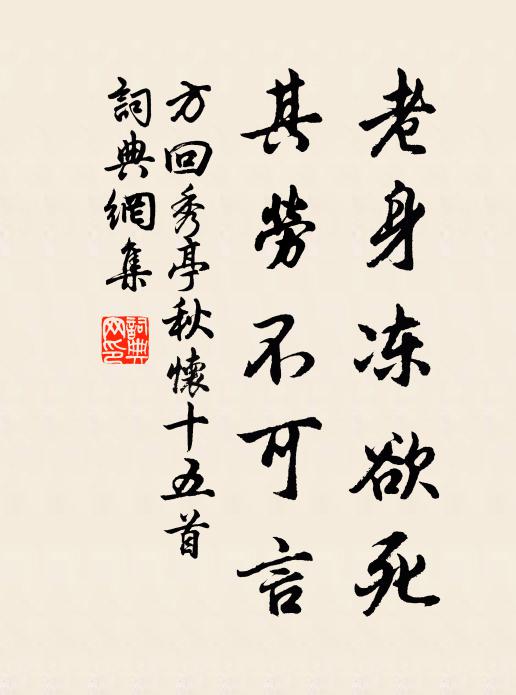 老身冻欲死
其勞不可言
方回秀亭秋懷十五首
詞典網集
詞典
网印